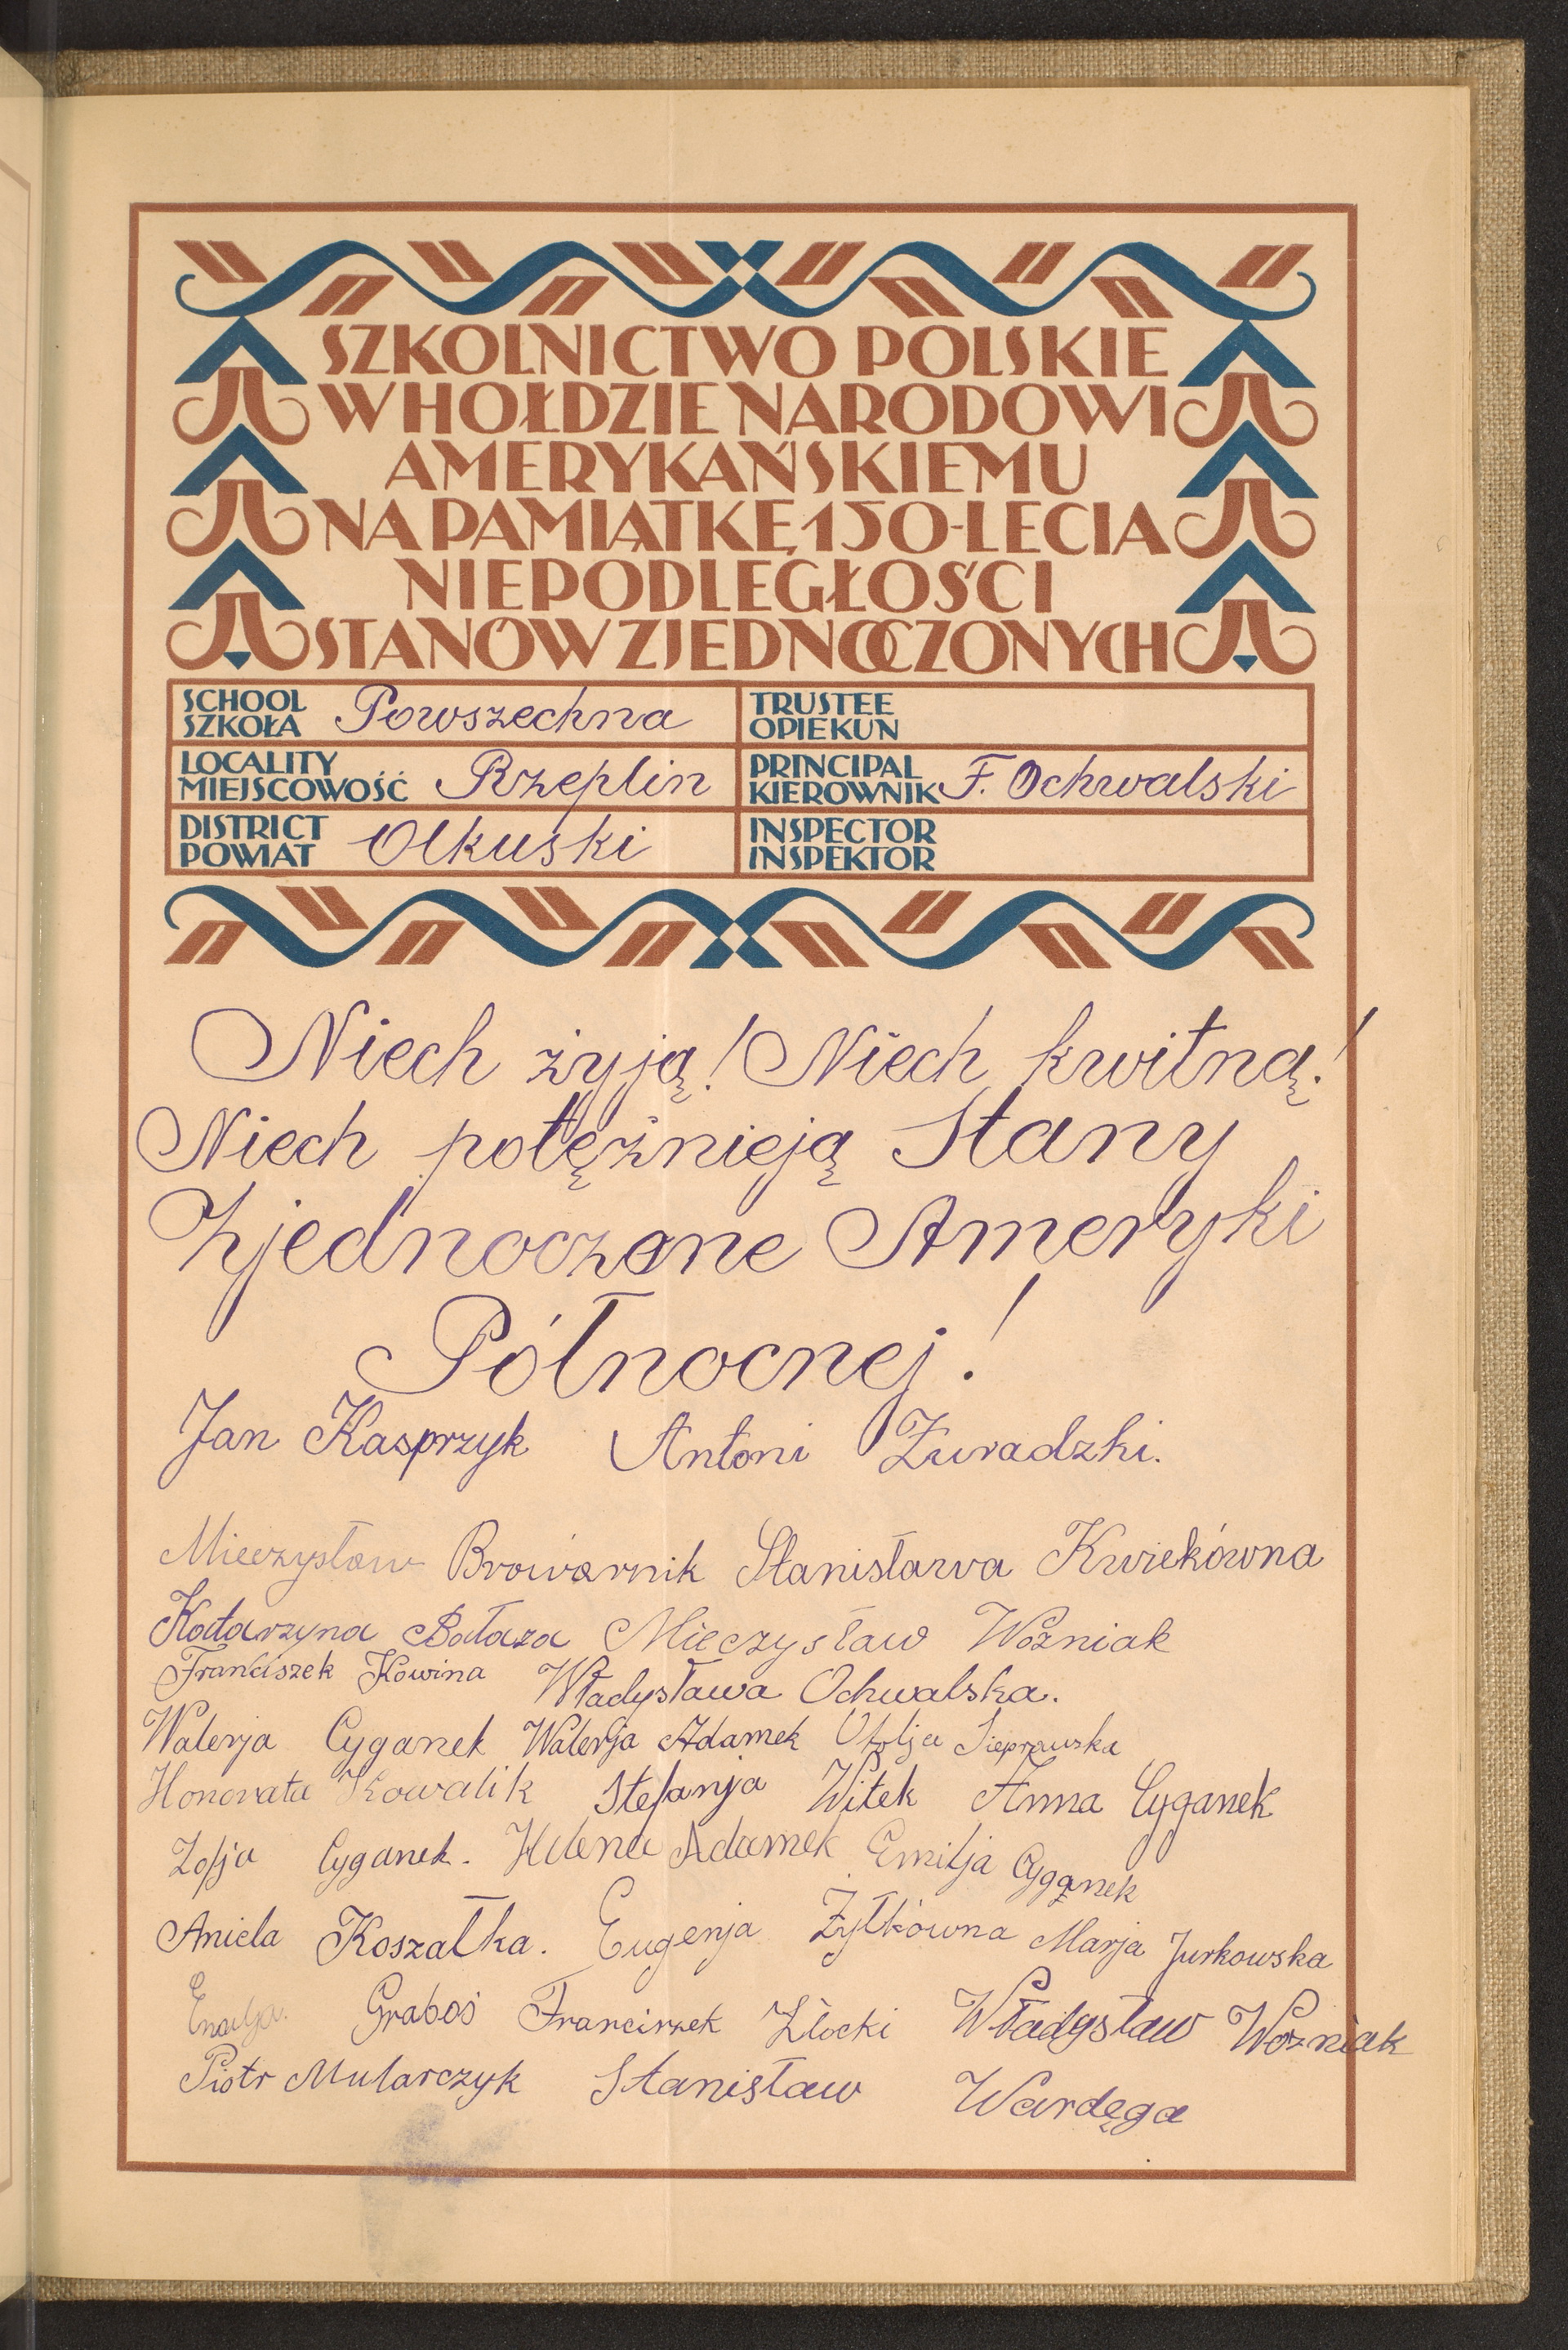 SZKOLNICTWO POLSKIE
W HOŁDZIE NARODOWI
AMERYKAŃSKIEMU
NA PAMIĄTKĘ 150-LECIA
NIEPODLEGŁOŚCI
STANÓW ZJEDNOCZONYCH
SCHOOL
SZKOŁA Powszechna
TRUSTEE
OPIEKUN
LOCALITY
MIEJSCOWOŚĆ Rzeplin
PRINCIPAL
KIEROWNIK F. Ochwalski
DISTRICT
POWIAT Olkuski
INSPECTOR
INSPEKTOR
Niech żyją! Niech kwitną!
Niech potężnieją Stany
Zjednoczone Ameryki
Północnej!
Jan Kasprzyk Antoni Żuradzki.
Mieczysław Browarnik Stanisława Kwiekówna
Katarzyna Bałaza Mieczysław Woźniak
Franciszek Kowina Władysława Ochwalska.
Walerja Cyganek Walerja Adamek Otylja Sieprawska
Honorata Kowalik Stefanja Witek Anna Cyganek
Zofja Cyganek. Helena Adamek Emilja Cyganek
Aniela Koszałka. Eugenja Żyłkówna Marja Jurkowska
Graboś Franciszek Złocki Władysław Woźniak
Piotr Mularczyk Stanisław Wardęga